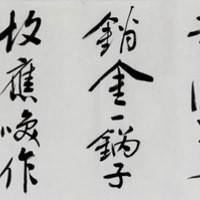 銷金一鍋子
故應喚作